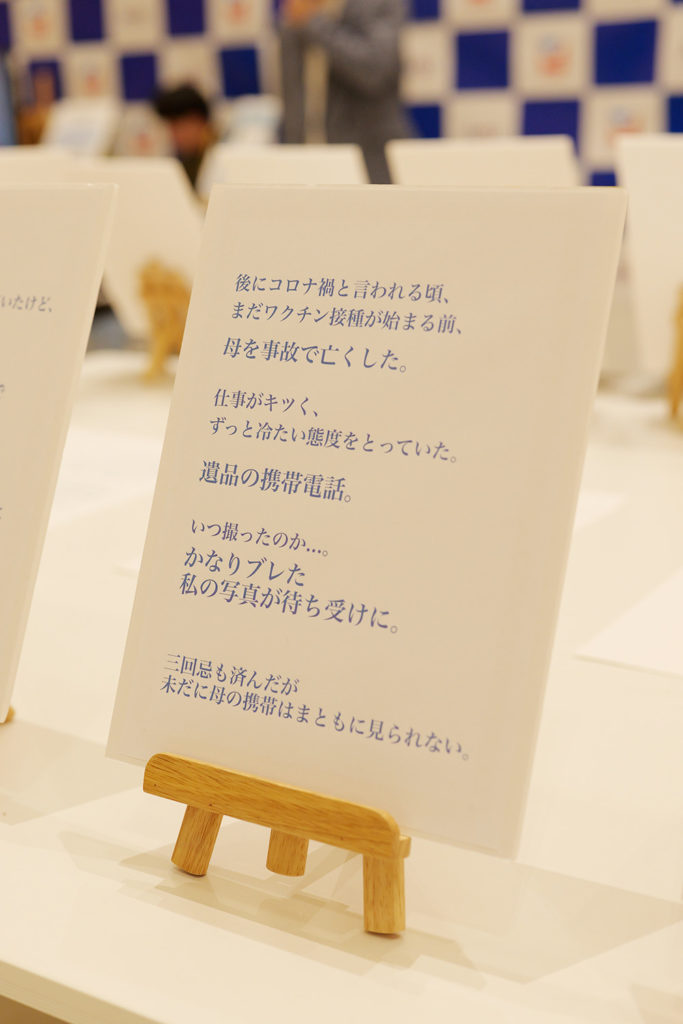 後にコロナ禍と言われる頃、
まだワクチン接種が始まる前、
母を事故で亡くした。
仕事がキツく、
ずっと冷たい態度をとっていた。
遺品の携帯電話。
いつ撮ったのか…。
かなりブレた
私の写真が待ち受けに。
三回忌も済んだが
未だに母の携帯はまともに見られない。
いたけど、